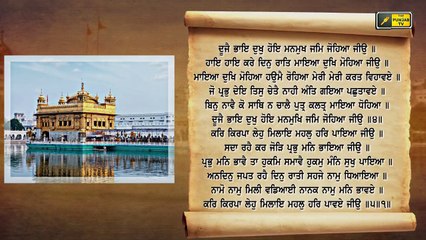 THE PUNJAB TV
ਦੂਜੈ ਭਾਇ ਦੁਖੁ ਹੋਇ ਮਨਮੁਖ ਜਮਿ ਜੋਹਿਆ ਜੀਉ ॥
ਹਾਇ ਹਾਇ ਕਰੇ ਦਿਨੁ ਰਾਤਿ ਮਾਇਆ ਦੁਖਿ ਮੋਹਿਆ ਜੀਉ ॥
ਮਾਇਆ ਦੁਖਿ ਮੋਹਿਆ ਹਉਮੈ ਰੋਹਿਆ ਮੇਰੀ ਮੇਰੀ ਕਰਤ ਵਿਹਾਵਏ ॥
ਜੋ ਪ੍ਰਭੁ ਦੇਇ ਤਿਸੁ ਚੇਤੈ ਨਾਹੀ ਅੰਤਿ ਗਇਆ ਪਛੁਤਾਵਏ ॥
ਬਿਨੁ ਨਾਵੈ ਕੋ ਸਾਥਿ ਨ ਚਾਲੈ ਪੁਤ੍ਰ ਕਲਤ੍ਰ ਮਾਇਆ ਧੋਹਿਆ ॥
ਦੂਜੈ ਭਾਇ ਦੁਖੁ ਹੋਇ ਮਨਮੁਖਿ ਜਮਿ ਜੋਹਿਆ ਜੀਉ ॥੪॥
ਕਰਿ ਕਿਰਪਾ ਲੇਹੁ ਮਿਲਾਇ ਮਹਲੁ ਹਰਿ ਪਾਇਆ ਜੀਉ ॥
ਸਦਾ ਰਹੈ ਕਰ ਜੋੜਿ ਪ੍ਰਭੁ ਮਨਿ ਭਾਇਆ ਜੀਉ ॥
ਪ੍ਰਭੁ ਮਨਿ ਭਾਵੈ ਤਾ ਹੁਕਮਿ ਸਮਾਵੈ ਹੁਕਮੁ ਮੰਨਿ ਸੁਖੁ ਪਾਇਆ ॥
ਅਨਦਿਨੁ ਜਪਤ ਰਹੈ ਦਿਨੁ ਰਾਤੀ ਸਹਜੇ ਨਾਮੁ ਧਿਆਇਆ ॥
ਨਾਮੋ ਨਾਮੁ ਮਿਲੀ ਵਡਿਆਈ ਨਾਨਕ ਨਾਮੁ ਮਨਿ ਭਾਵਏ ॥
ਕਰਿ ਕਿਰਪਾ ਲੇਹੁ ਮਿਲਾਇ ਮਹਲੁ ਹਰਿ ਪਾਵਏ ਜੀਉ ॥੫॥੧॥